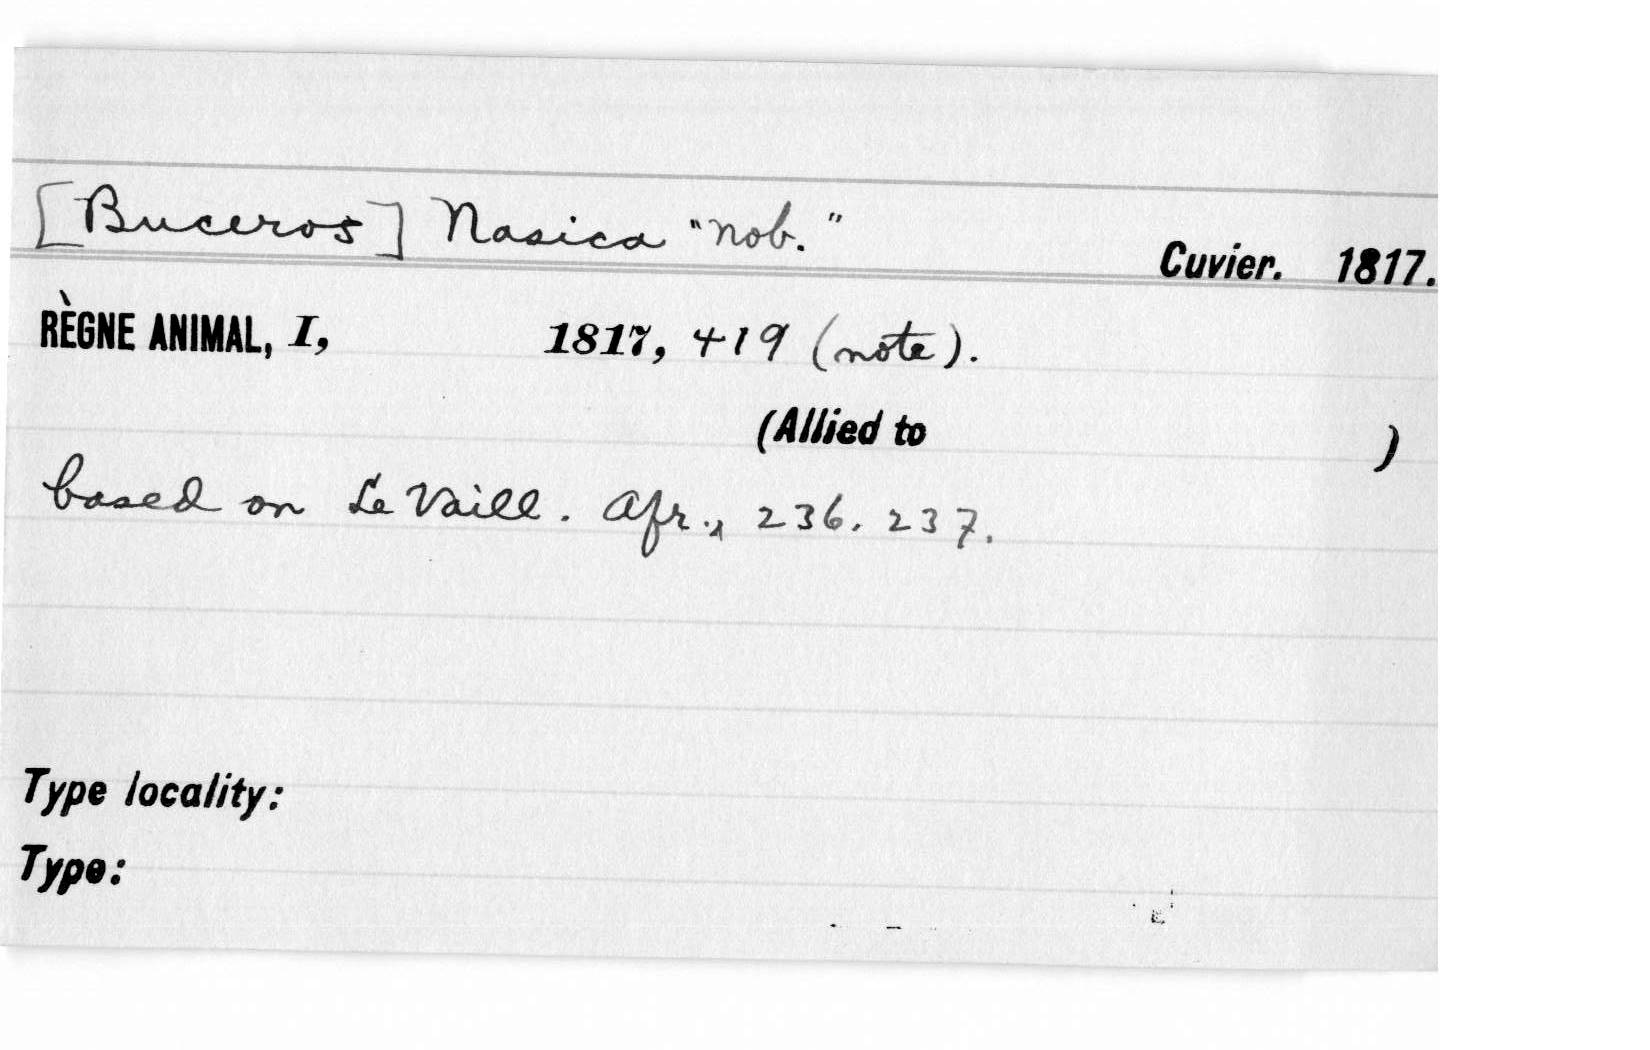 [Buceros] Nasica "nob."
Cuvier. 1817.
RÈGNE ANIMAL, I, 1817, 419 (note).
(Allied to )
based on Le Vaill. Afr., 236. 237.
Type locality:
Type: